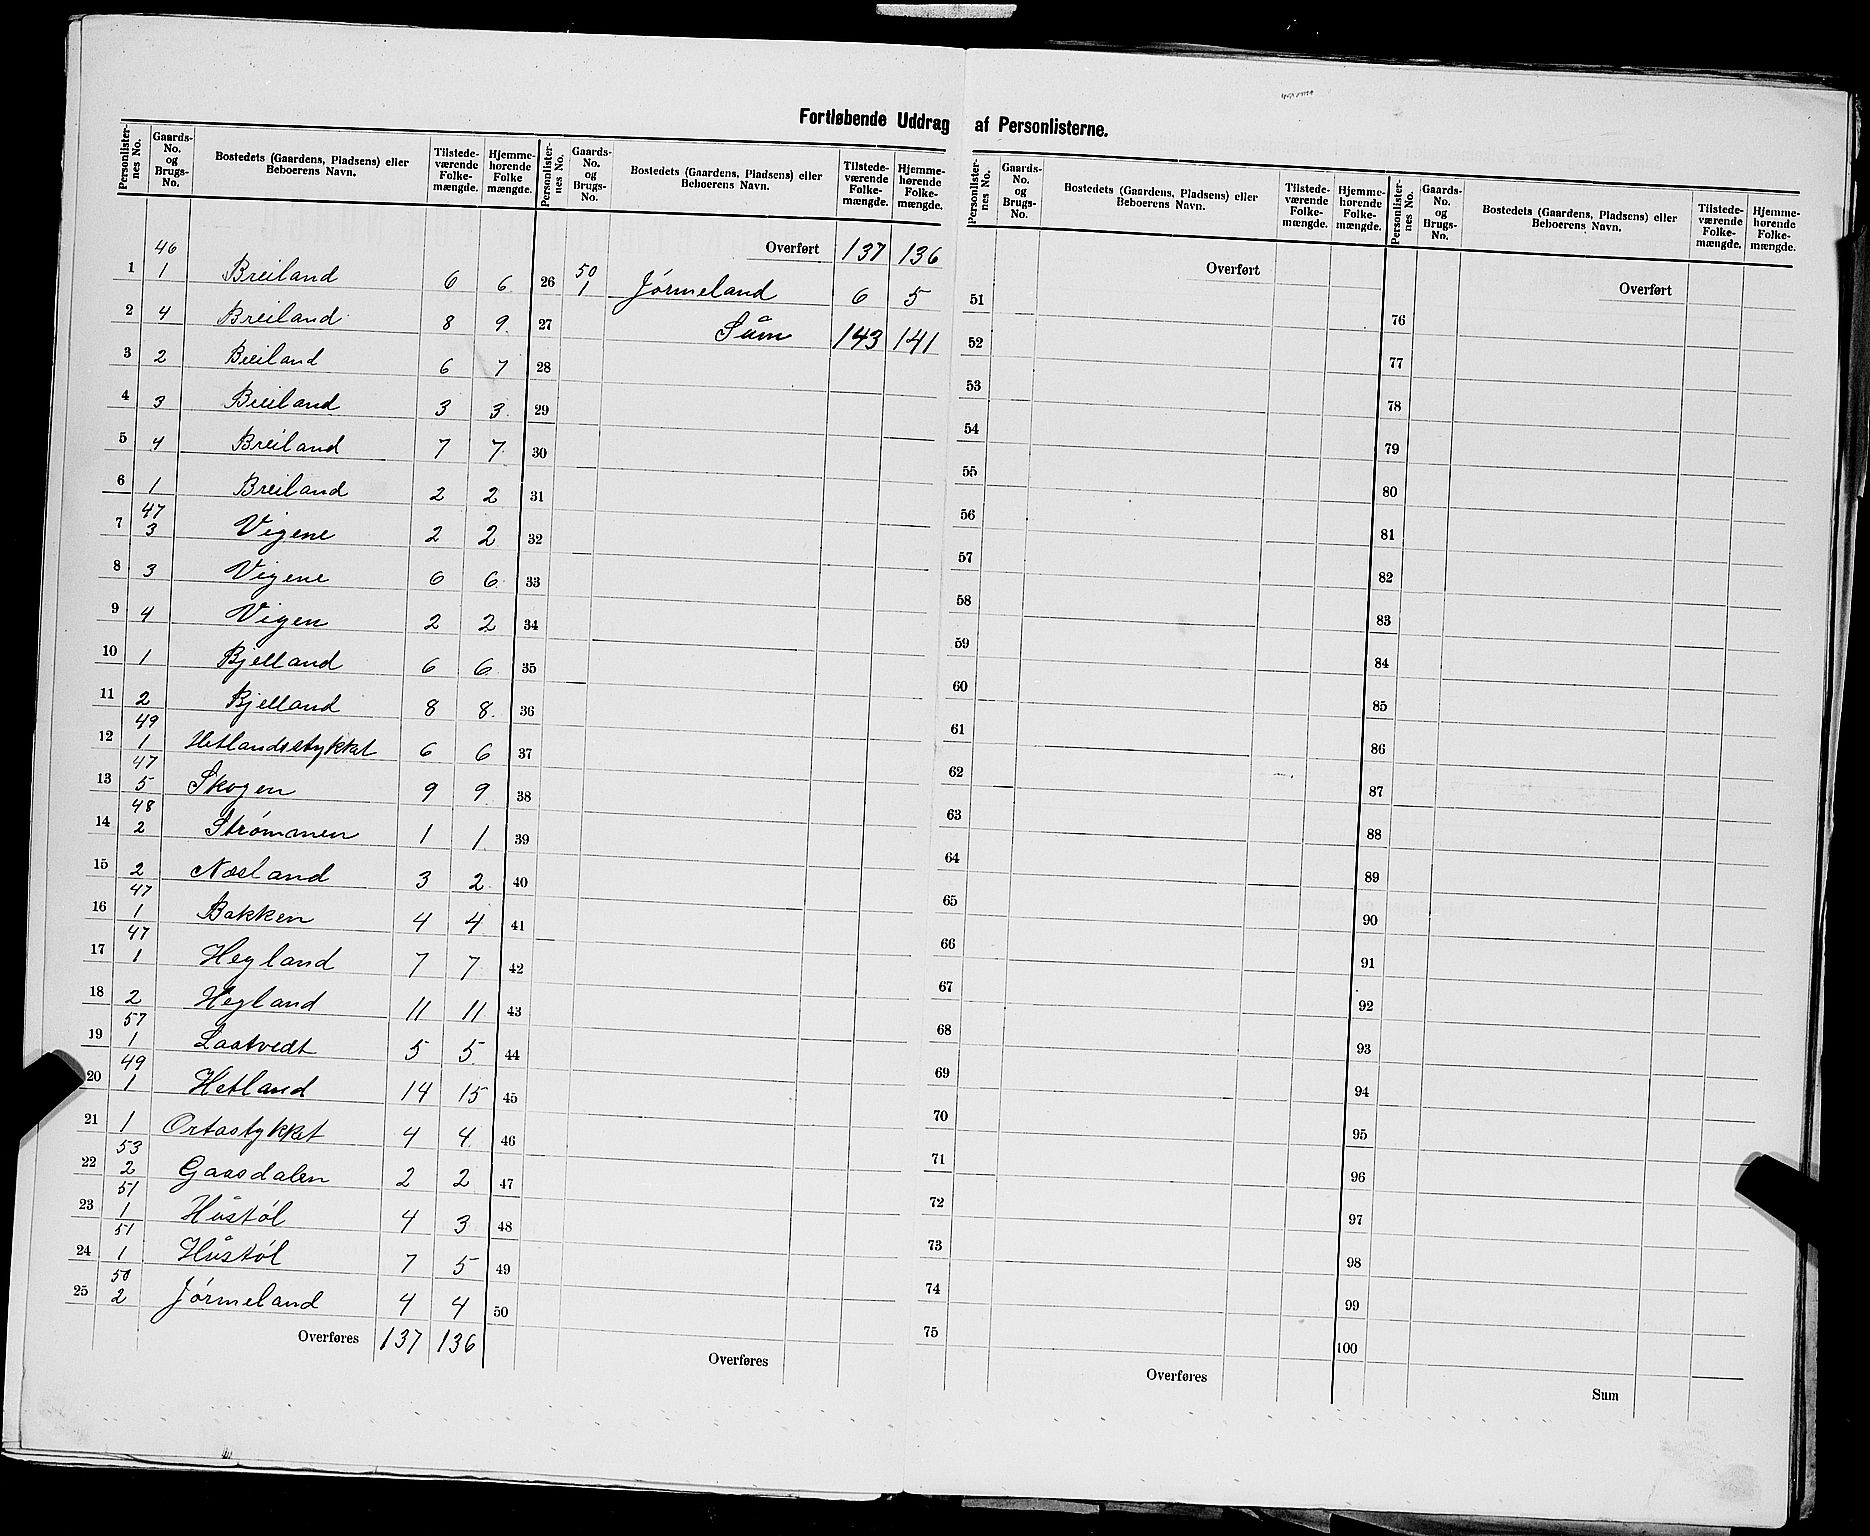 Fortløbende Uddrag af Personlisterne.
Personlisternes No. | Gaards-No. og Brugs-No. | Bostedets (Gaardens, Pladsens) eller Beboerens Navn. | Tilstedeværende Folkemængde. | Hjemmehørende Folkemængde.
1 | 46 1 | Breiland | 6 | 6
2 | 4 | Breiland | 8 | 9
3 | 2 | Breiland | 6 | 7
4 | 3 | Breiland | 3 | 3
5 | 4 | Breiland | 7 | 7
6 | 1 | Breiland | 2 | 2
7 | 47 3 | Vigene | 2 | 2
8 | 3 | Vigene | 6 | 6
9 | 4 | Vigen | 2 | 2
10 | 1 | Bjelland | 6 | 6
11 | 2 | Bjelland | 8 | 8
12 | 49 1 | Hetlandsstykket | 6 | 6
13 | 47 5 | Skogen | 9 | 9
14 | 48 2 | Strømmen | 1 | 1
15 | 2 | Næsland | 3 | 2
16 | 47 1 | Bakken | 4 | 4
17 | 47 1 | Hegland | 7 | 7
18 | 2 | Hegland | 11 | 11
19 | 57 1 | Laatvedt | 5 | 5
20 | 49 1 | Hetland | 14 | 15
21 | 1 | Ortastykket | 4 | 4
22 | 53 2 | Gaasdalen | 2 | 2
23 | 51 1 | Hustøl | 4 | 3
24 | 51 1 | Hustøl | 7 | 5
25 | 50 2 | Jørmeland | 4 | 4
Overføres | 137 | 136
Personlisternes No. | Gaards-No. og Brugs-No. | Bostedets (Gaardens, Pladsens) eller Beboerens Navn. | Tilstedeværende Folkemængde. | Hjemmehørende Folkemængde.
Overført | 137 | 136
26 | 50 1 | Jørmeland | 6 | 5
27 | Sum | 143 | 141
28
29
30
31
32
33
34
35
36
37
38
39
40
41
42
43
44
45
46
47
48
49
50
Overføres
Personlisternes No. | Gaards-No. og Brugs-No. | Bostedets (Gaardens, Pladsens) eller Beboerens Navn. | Tilstedeværende Folkemængde. | Hjemmehørende Folkemængde.
Overført
51
52
53
54
55
56
57
58
59
60
61
62
63
64
65
66
67
68
69
70
71
72
73
74
75
Overføres
Personlisternes No. | Gaards-No. og Brugs-No. | Bostedets (Gaardens, Pladsens) eller Beboerens Navn. | Tilstedeværende Folkemængde. | Hjemmehørende Folkemængde.
Overført
76
77
78
79
80
81
82
83
84
85
86
87
88
89
90
91
92
93
94
95
96
97
98
99
100
Sum